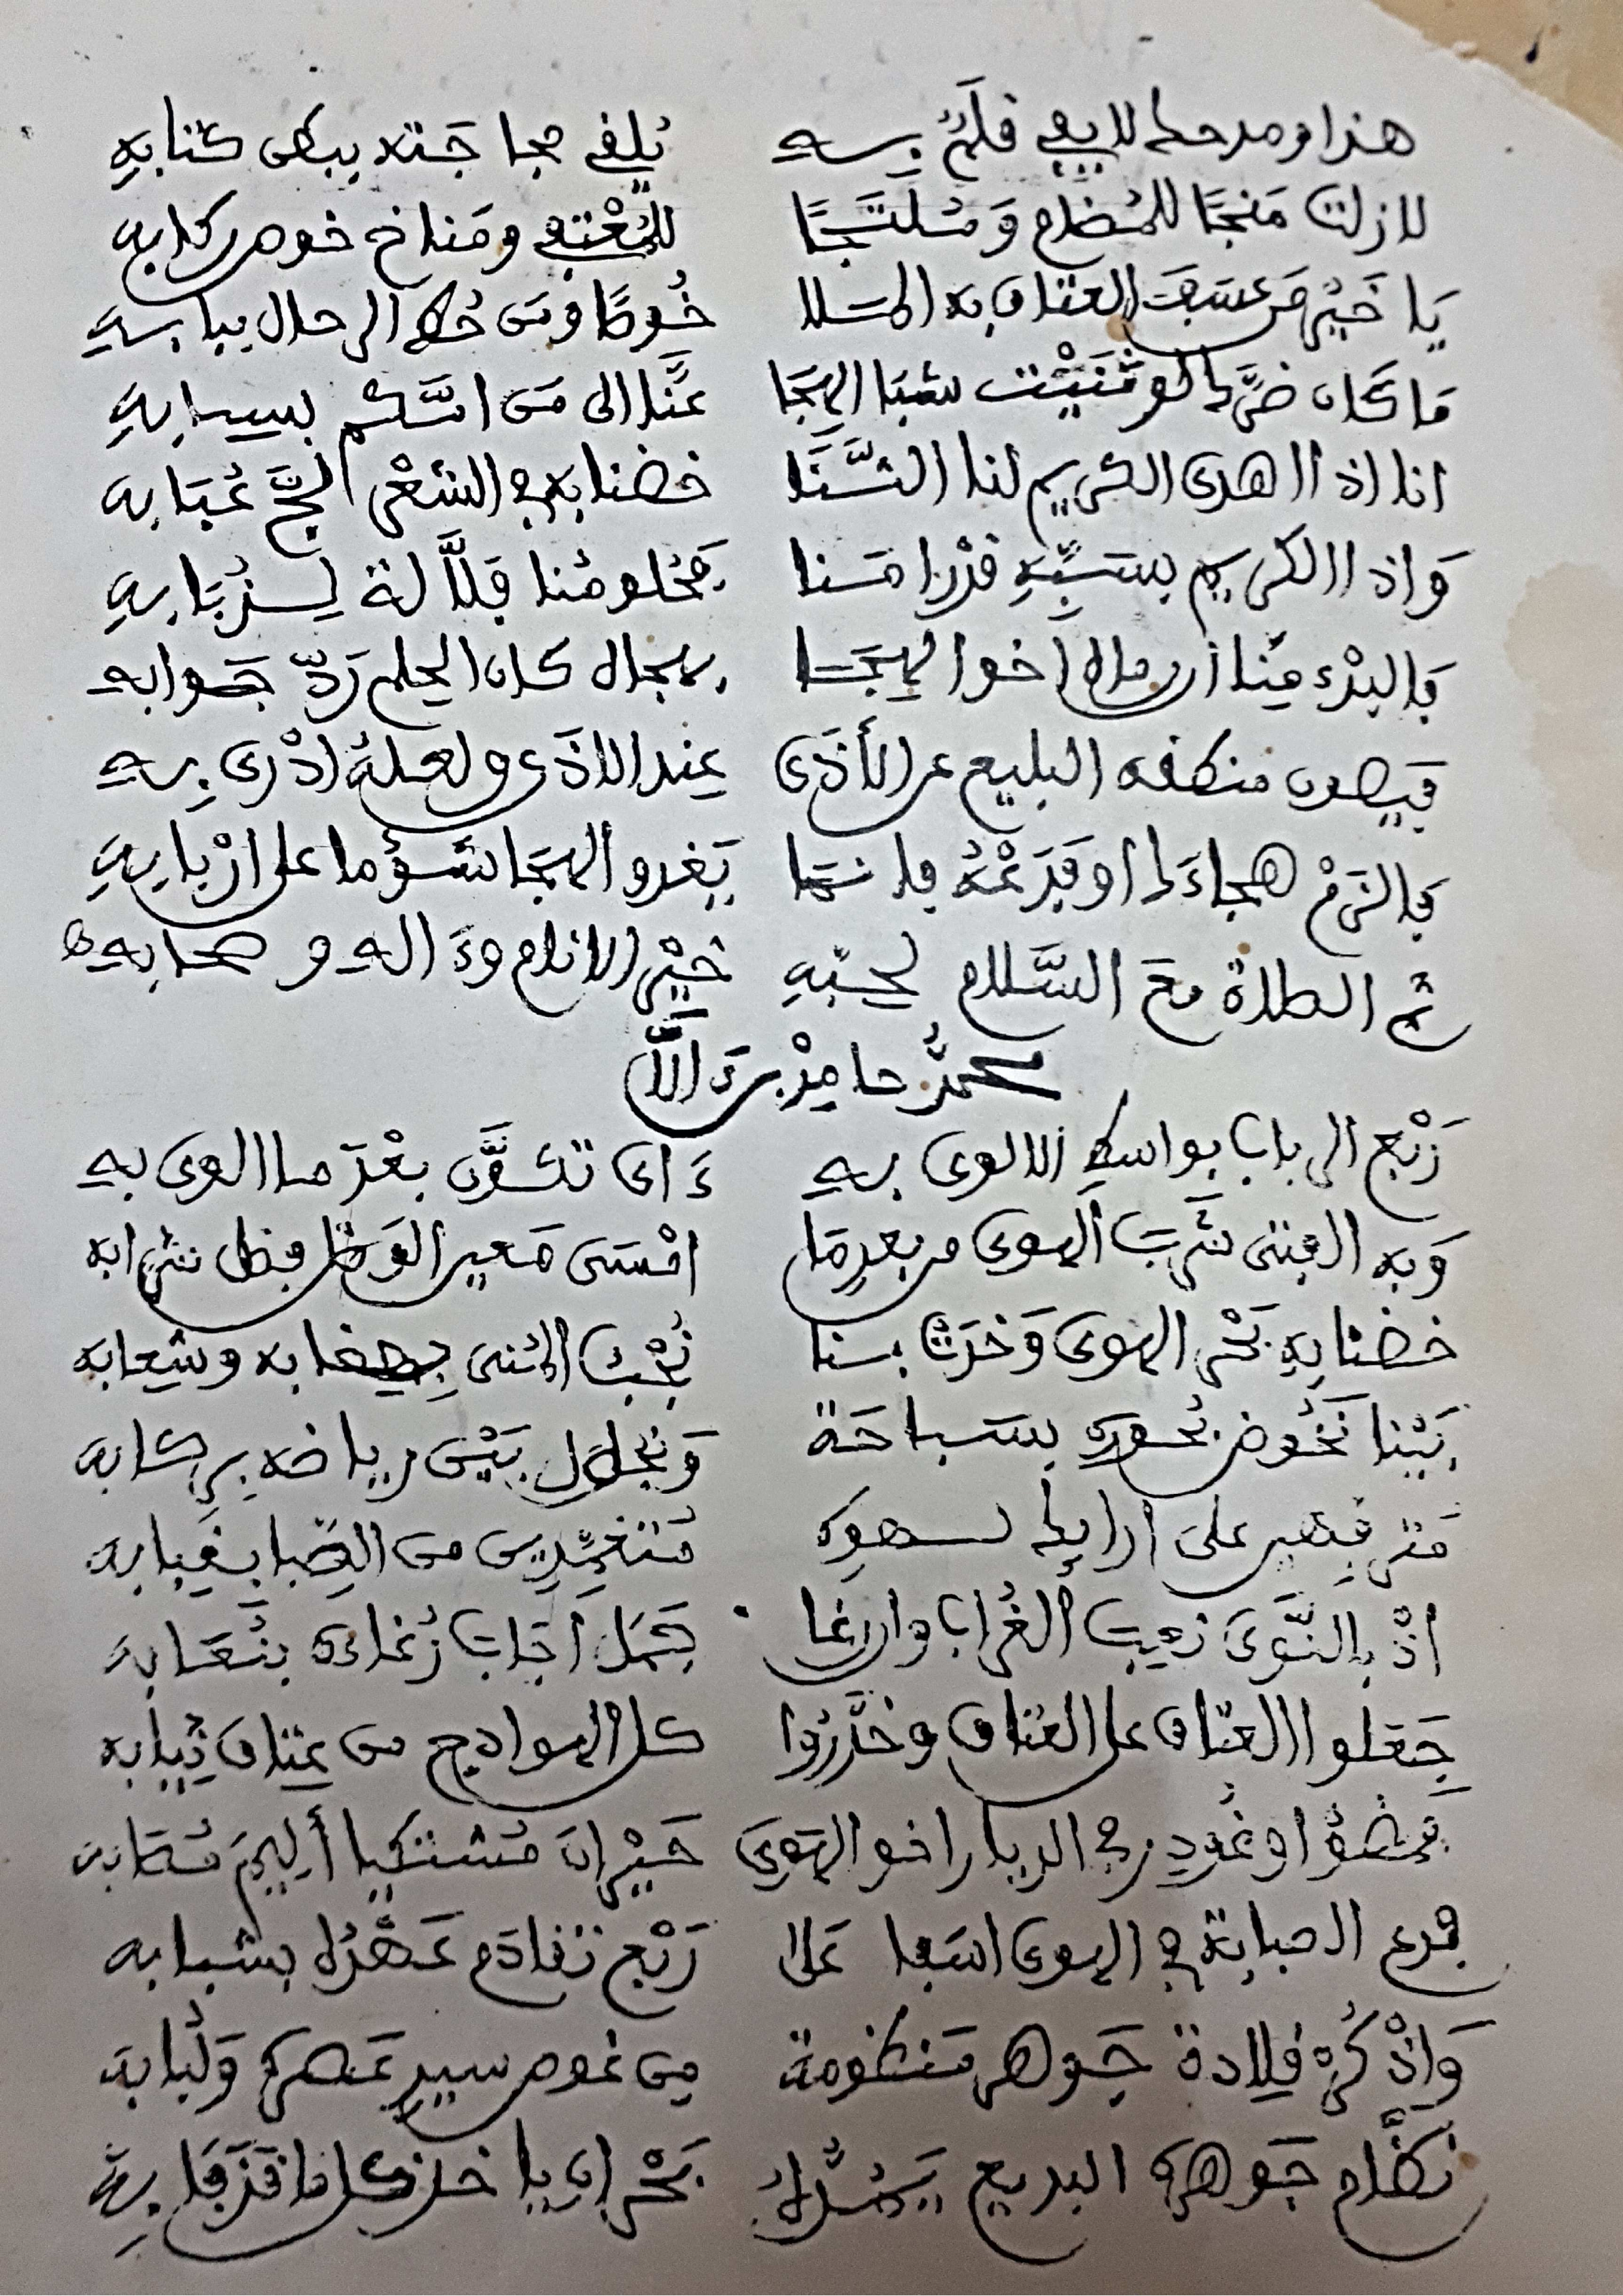 هذا ومدحك لا يفى فلم به يلفى مجا جته ببطى كتابه
لا زلت منجا للمضام وملتجا للمعتفى ومناخ خوص ركابه
يا خير من عسفت العتاق به الملا خوطا ومن حط الرحال ببابه
ما كان ضرك لو ثنيت شبا الهجا عنا الى من امكم بسبابه
انا اذا اهدى الكريم لنا الثنا خضنا به فى الشعر لج عبابه
واذا الكريم بسبه قد امنا يخلومنا
فالبدء منا ان بدا لك اخوا لهجا بهجاك كان الحلم رد جوابه
فيصون منطقه البليغ عن الأذى عند الاذى ولعله ادرى به
فالزم هجاءك او فدعه فانما يغدو الهجا شؤما على اربابه
ثم الصلاة مع السلام لحبه خير الانام وءاله وصحابه
محمد حامد بن ءالا
ربع الرباب بواسط الالوى به ءاى تشوق بعد ما الوى به
وبه الفتى شرب الهوى من بعد ما امسى معير الوصل فيظل شرابه
خضنا به بحر الهوى وخدت بنا نجب المنى بهضابه وشعابه
بتنا نخوض بحوره بسباحة ونجول بين رياضه بركابه
على ارايك لهوه متغمدين من الصبا بغبابه
اذ بالنوى نعب الغراب وان رغا جمل اجاب رغاءه بنعابه
جعلوا العتاق على العتاق وخدروا كل الهوادج من عتاق ثيابه
فمضوا وغودر فى الديار اخو الهوى حيران مشتكيا أليم مصابه
فدع الصبابة فى الهوى اسفا على ربع تقادم عهده بشبابه
واذكر قلادة جوهر منظومة من غوص سيد عصره ولبابه
نظام جوهره البديع يمده بحران يا خذ كلما قذفا به